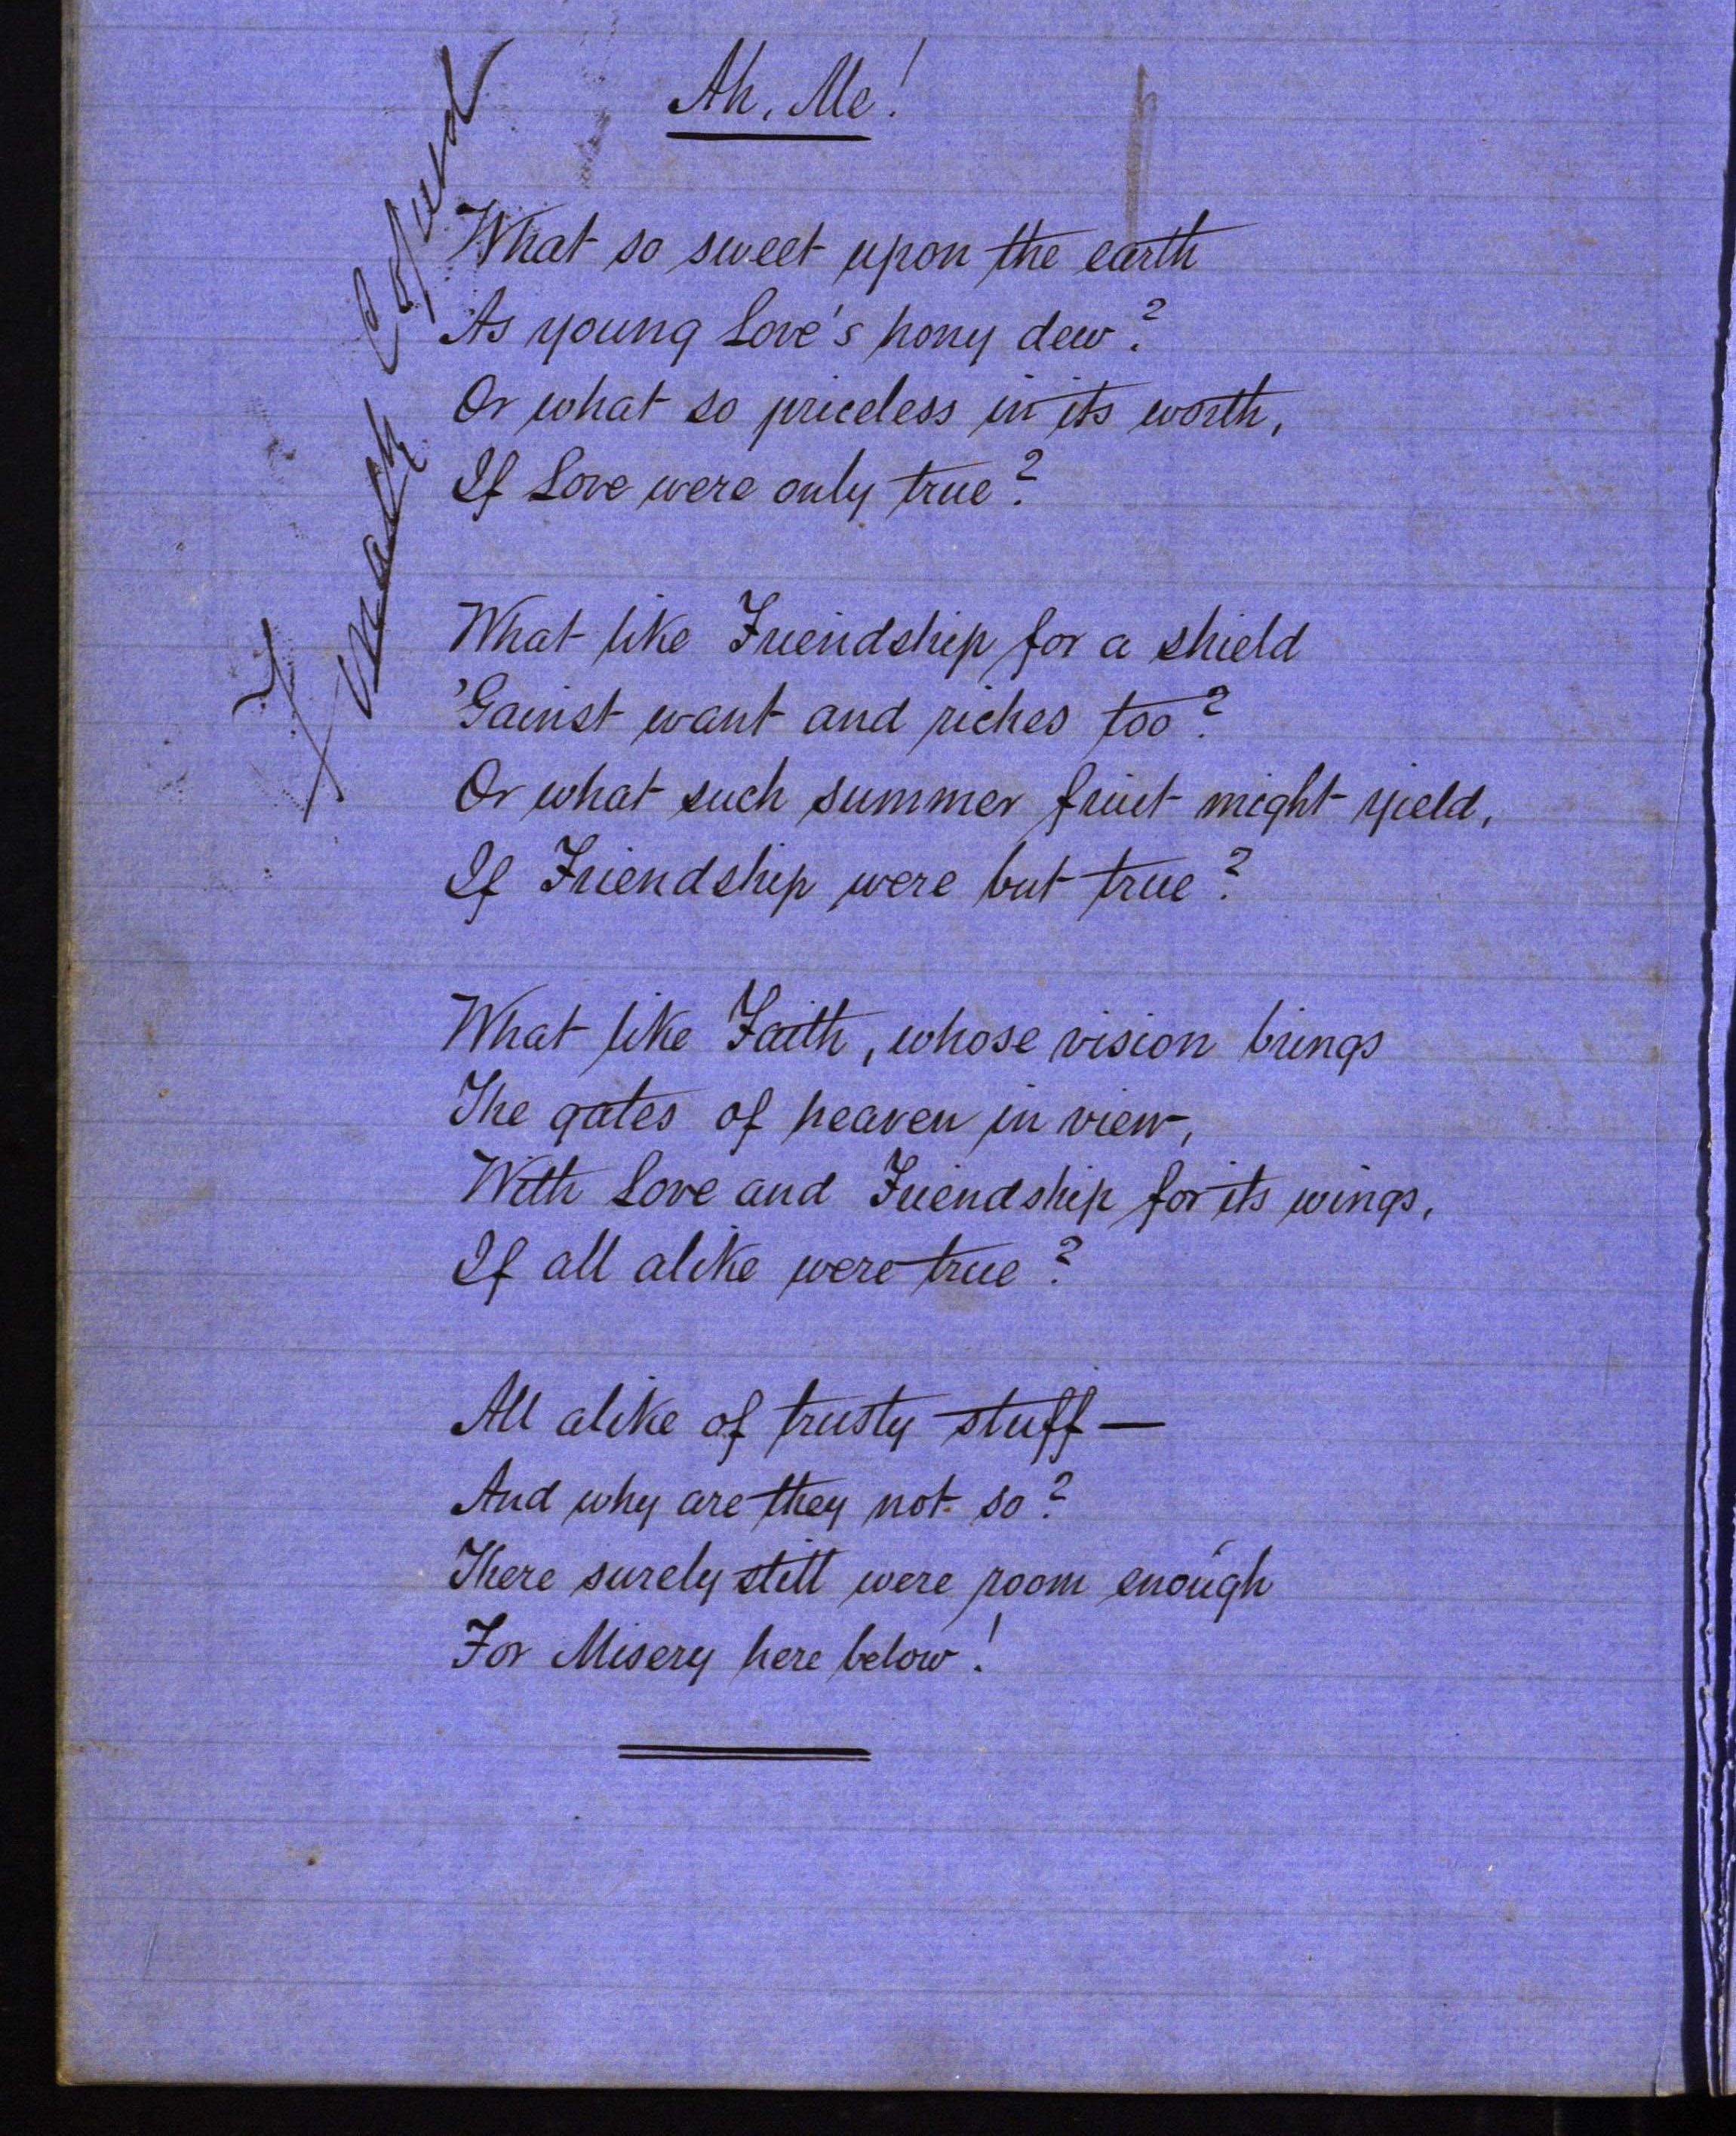 Ah, Me!
Copied
What so sweet upon the earth
As young Love's hony dew?
Or what so priceless in its worth,
If Love were only true?
What like Friendship for a shield
'Gainst want and riches too?
Or what such summer fruit might yield,
If Friendship were but true?
What like Faith, whose vision brings
The gates of heaven in view,
With Love and Friendship for its wings,
If all alike were true?
All alike of trusty stuff—
And why are they not so?
There surely still were room enough
For Misery here below!